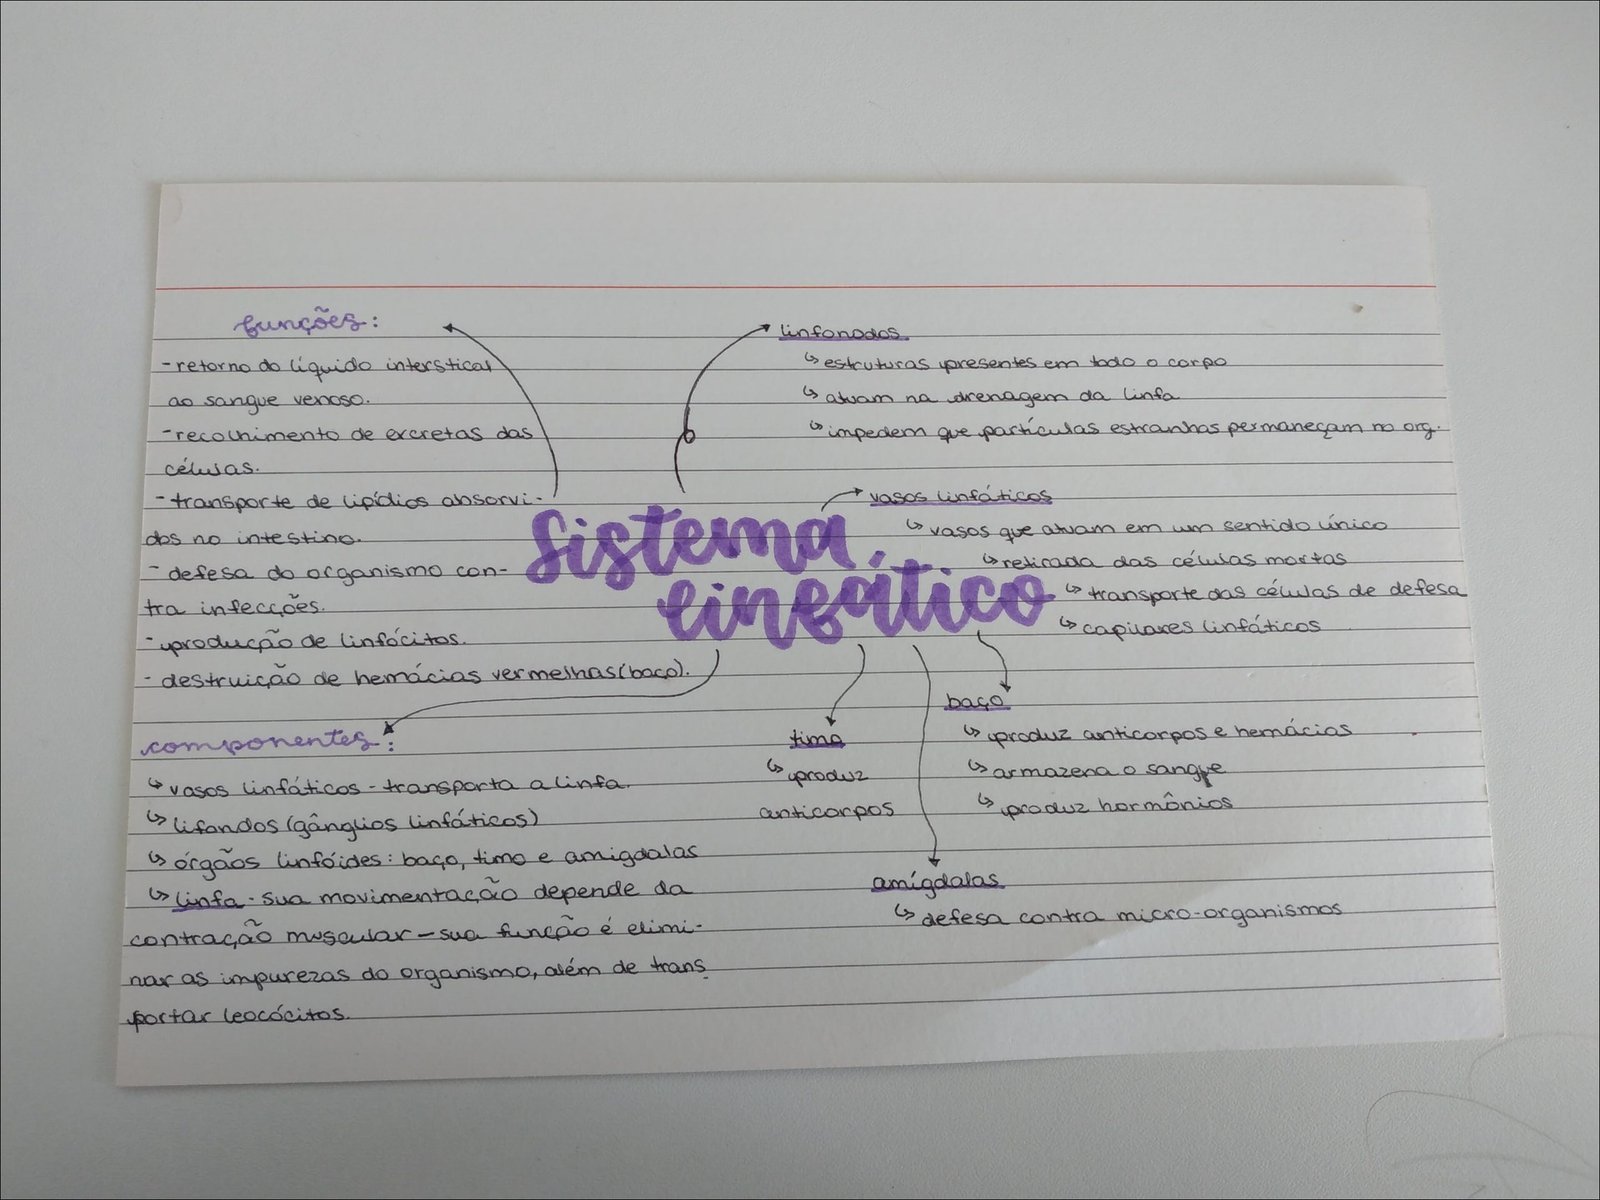 funções:
-retorno do líquido intersticial
ao sangue venoso.
-recolhimento de excretas das
células.
-transporte de lipídios absorvi-
dos no intestino.
- defesa do organismo con-
tra infecções.
-produção de linfócitos.
- destruição de hemácias vermelhas(baço).
componentes:
↳ vasos linfáticos - transporta a linfa.
↳ lifandos (gânglios linfáticos)
↳ órgãos linfóides: baço, timo e amigdalas
↳ linfa - sua movimentação depende da
contração muscular - sua função é elimi-
nar as impurezas do organismo, além de trans-
portar leocócitos.
Sistema
linfático
linfonodos
↳ estruturas presentes em todo o corpo
↳ atuam na drenagem da linfa
↳ impedem que partículas estranhas permaneçam no org.
vasos linfáticos
↳ vasos que atuam em um sentido único
↳ retirada das células mortas
↳ transporte das células de defesa
↳ capilares linfáticos
timo
↳ produz
anticorpos
baço
↳ produz anticorpos e hemácias
↳ armazena o sangue
↳ produz hormônios
amígdalas
↳ defesa contra micro-organismos